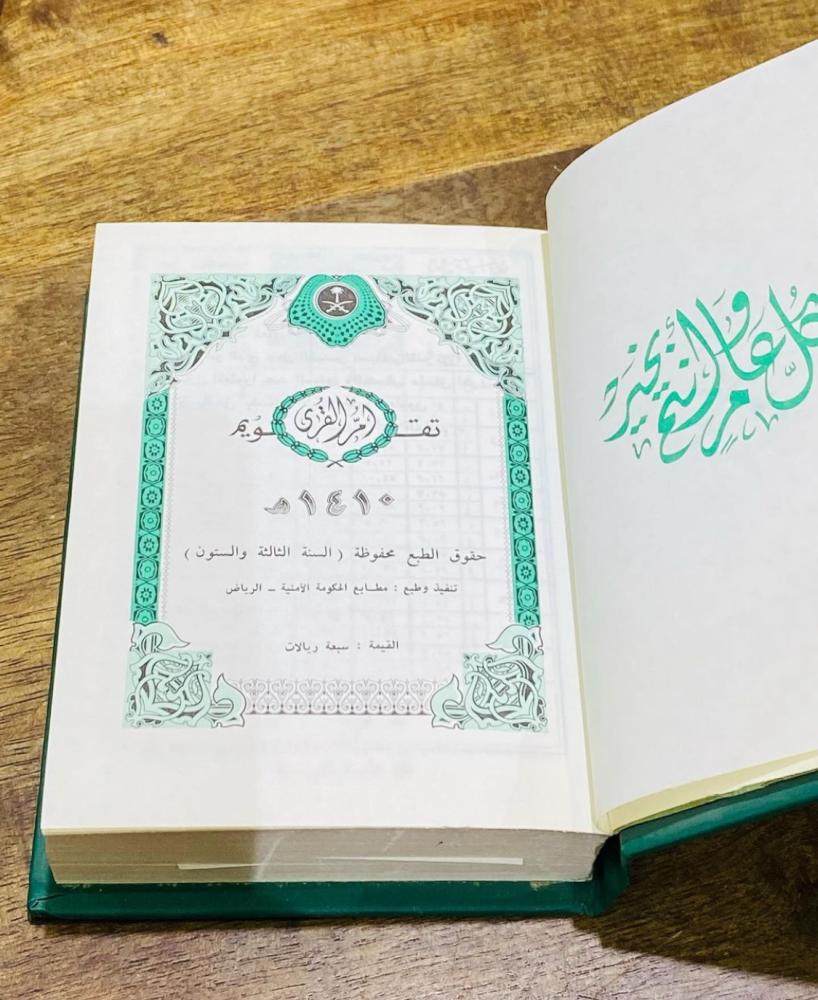 كل عام وأنتم بخير
تقويم أم القرى
١٤١٠هـ
حقوق الطبع محفوظة ( السنة الثالثة والستون )
تنفيذ وطبع : مطابع الحكومة الأمنية ــ الرياض
القيمة : سبعة ريالات